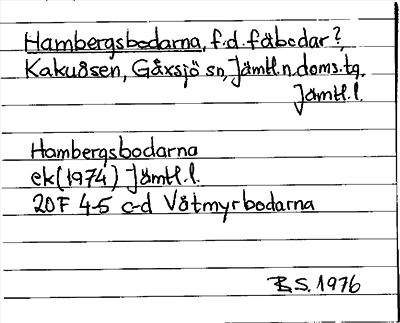 Hambergsbodarna, f.d. fäbodar?,
Kakuåsen, Gåxsjö sn, Jämtl.n.doms.tg.
Jämtl.l.
Hambergsbodarna
ek(1974) Jämtl.l.
20F 4-5 c-d Våtmyrbodarna
B.S. 1976